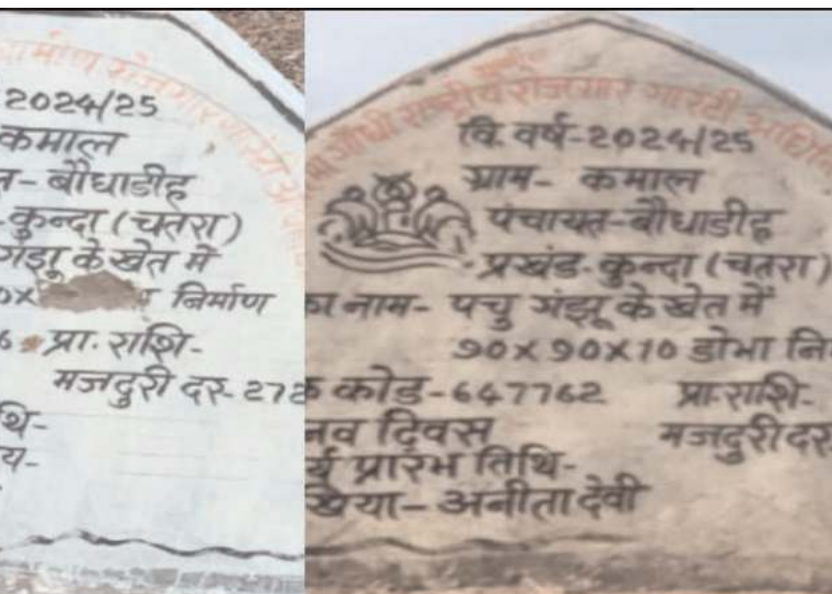 ग्रामीण रोजगार गारंटी
2024/25
कमाल
त- बौधाडीह
-कुन्दा (चतरा)
गंझू के खेत में
0x निर्माण
6 प्रा. राशि-
मजदुरी दर- 272
थि-
य-
गाँधी राष्ट्रीय रोजगार गारंटी अधिनि
वि. वर्ष-2024/25
ग्राम- कमाल
पंचायत-बौधाडीह
प्रखंड-कुन्दा (चतरा)
का नाम- पचु गंझू के खेत में
90x90x10 डोभा नि
क कोड-647762 प्रा.राशि-
नव दिवस मजदुरी दर
र्य प्रारंभ तिथि-
खिया- अनीता देवी